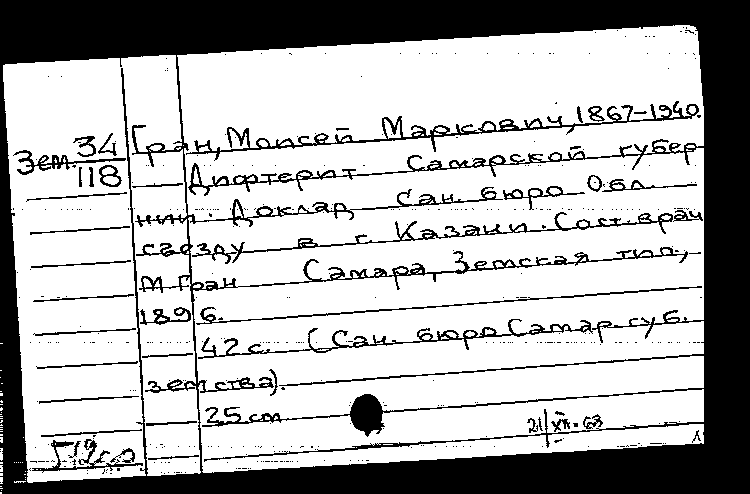 Зем. 34/118
Гран, Моисей Маркович, 1867-1940.
Дифтерит Самарской губер
нии. Доклад Сан. бюро Обл.
съезду в г. Казани. Сост. врач
М. Гран Самара, Земская тип.,
1896.
42 с. (Сан. бюро Самар. губ.
земства).
25 cm
21/XII-63